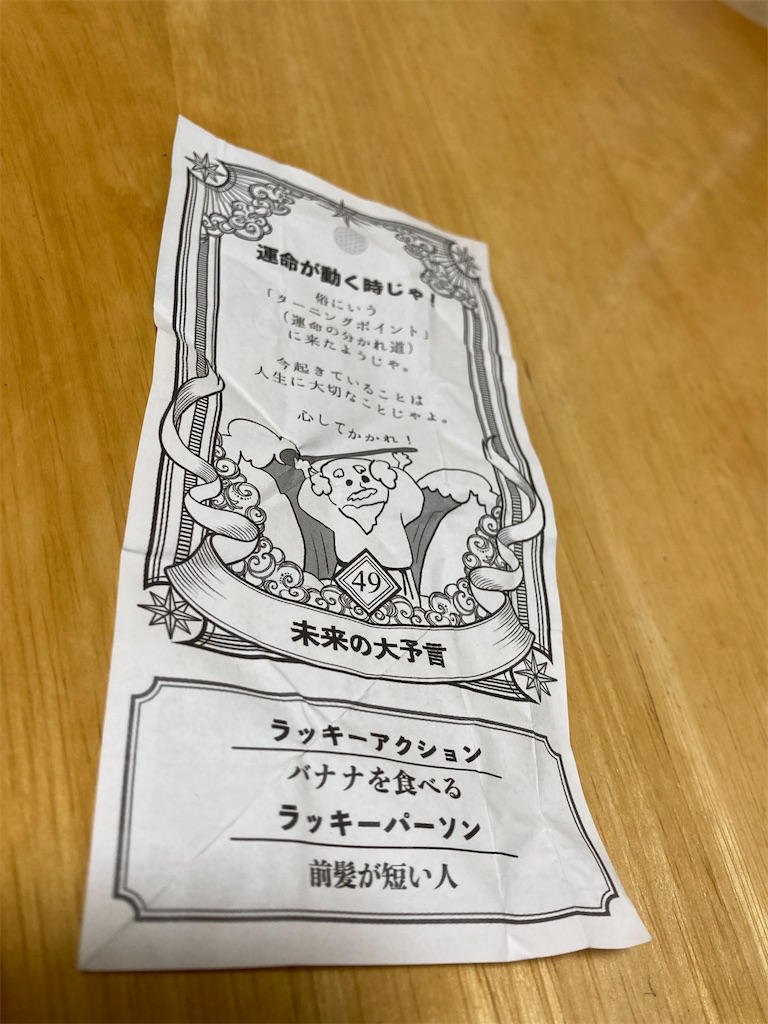 運命が動く時じゃ！
俗にいう
「ターニングポイント」
（運命の分かれ道）
に来たようじゃ。
今起きていることは
人生に大切なことじゃよ。
心してかかれ！
49
未来の大予言
ラッキーアクション
バナナを食べる
ラッキーパーソン
前髪が短い人